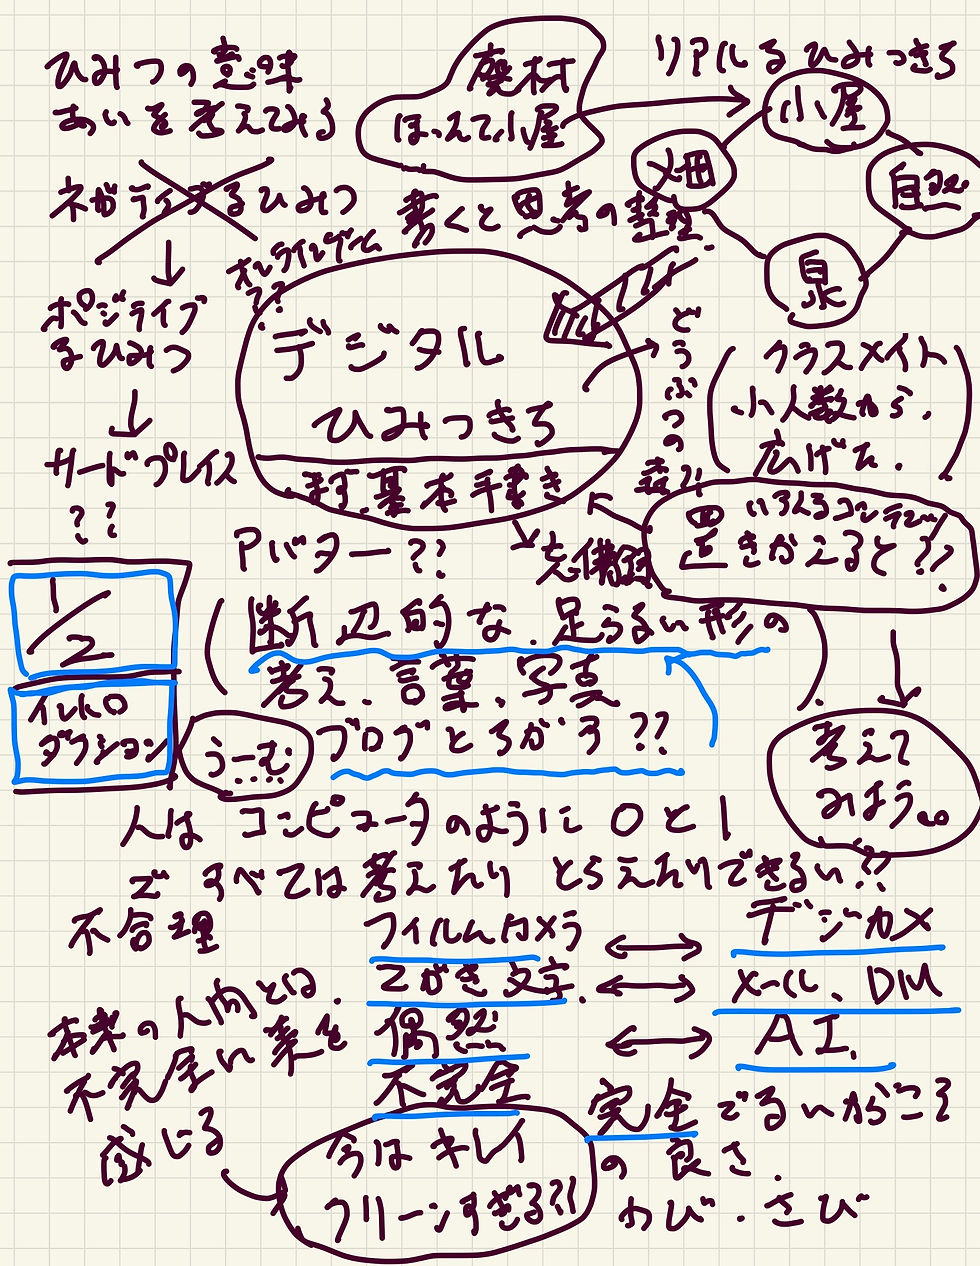 ひみつの意味
あいを考えてみる
廃材
ほったて小屋
リアルなひみつきち
小屋
畑
自然
泉
ネガティブなひみつ
書くと思考の整理
オンラインゲーム
??
ポジティブ
なひみつ
デジタル
ひみつきち
まず、基本手書き
どうぶつの森?!
クラスメイト
小人数から、
広げた。
サードプレイス
??
Pバター??
忘備録
いろんなコンテンツ
置きかえると??
1/2
イントロ
ダクション
断辺的な、足らない形の
考え、言葉、写真
ブログとちがう??
うーむ
考えて
みよう。
人は コンピュータのように 0と1
で すべては考えたり とらえたりできない??
不合理
フィルムカメラ
デジカメ
てがき文字、
メール、DM
偶然
AI、
不完全
本来の人間とは、
不完全い 美を
感じる
完全でないからこそ
の良さ、
わび・さび
今はキレイ
クリーンすぎる?!